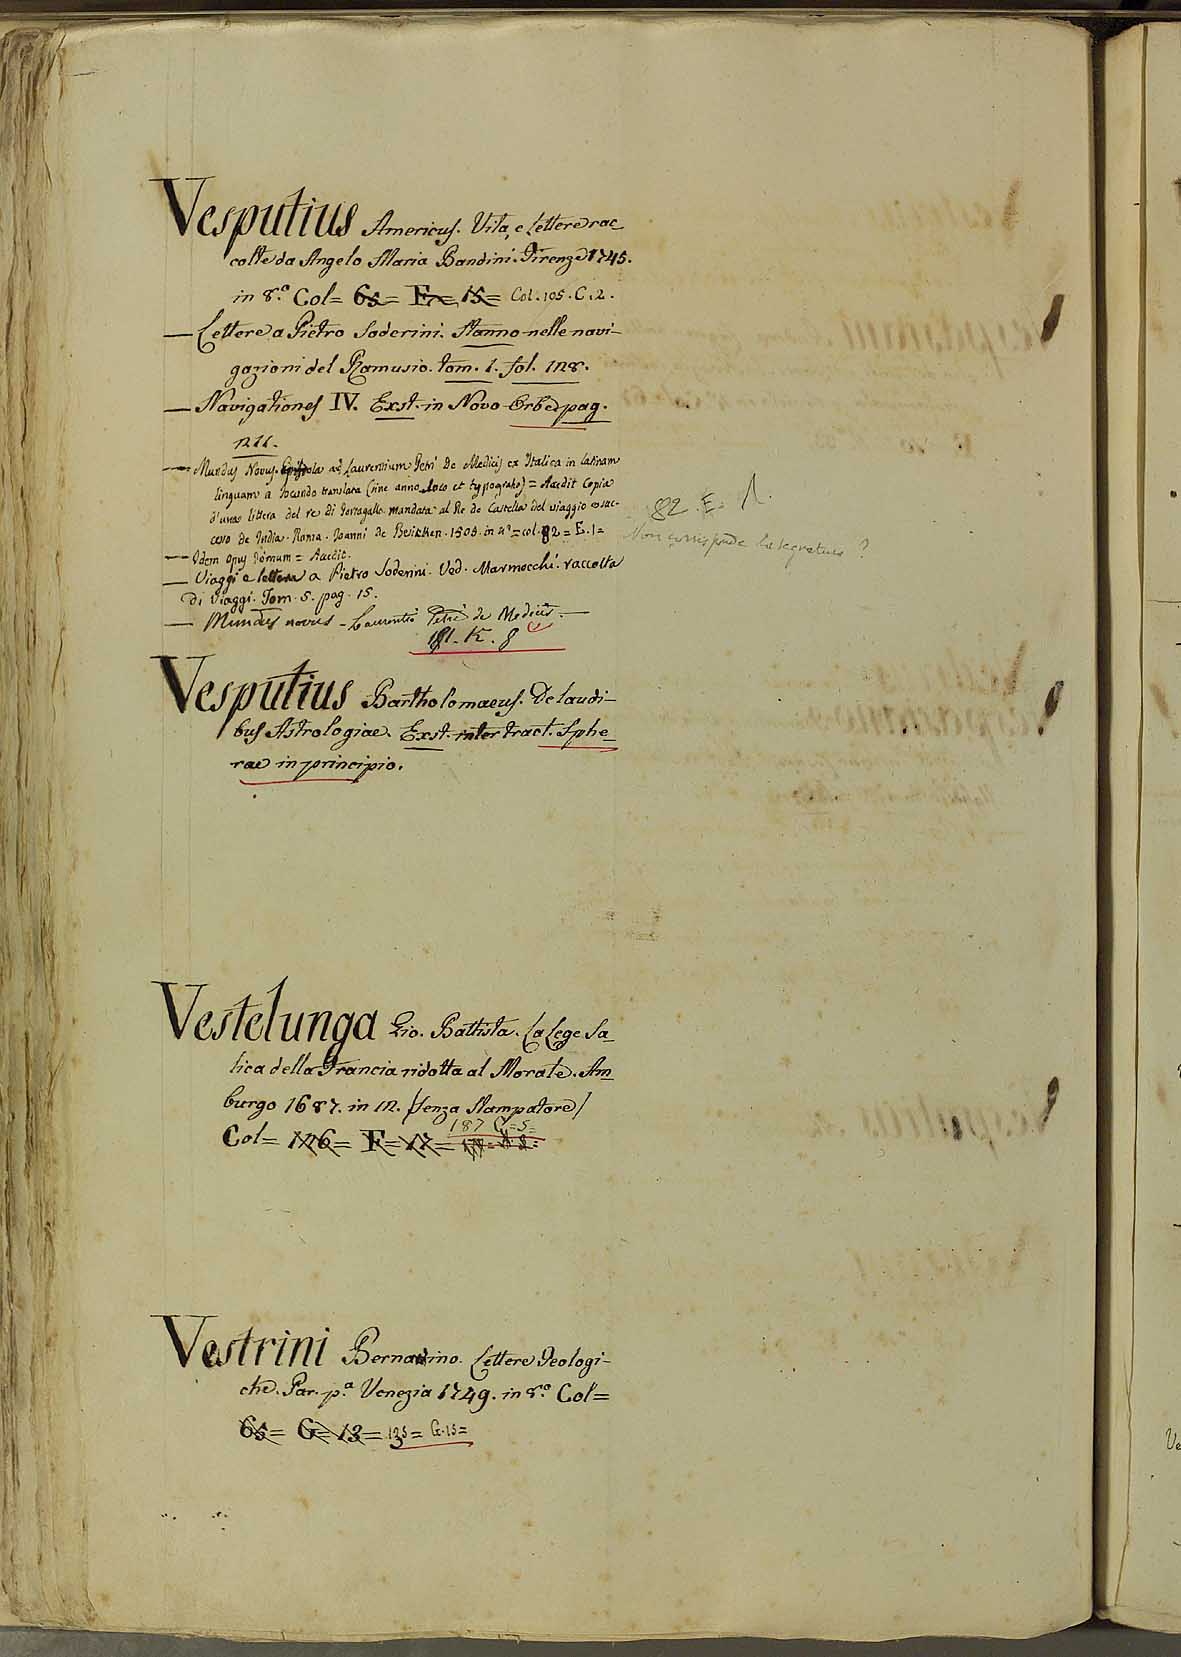 Vesputius Americus. Vita, e Lettere rac
colte da Angelo Maria Bandini. Firenze 1745.
in 8.º Col= 65= F= 15= Col. 105. C. 2.
— Lettere a Pietro Soderini. Stanno nelle navi-
gazioni del Ramusio. tom. 1. fol. 128.
— Navigationes IV. Exst. in Novo Orbe pag.
211.
— Mundus Novus. Epistola ad Laurentium Petri de Medicis ex Italica in latinam
linguam a Jocundo translata (sine anno loco et typographo) = Accedit Copia
d'una littera del re di Portagallo mandata al Re de Castella del viaggio e suc-
cesso de India. Roma. Joanni de Besicken. 1505. in 4º = col. 82 = E. 1=
82. E. 1.
Non corrisponde la segnatura?
— Idem Opus = Accedit.
— Viaggi e lettera a Pietro Soderini. Ved. Marmocchi. raccolta
di Viaggi. Tom. 5. pag. 15.
— Mundus novus - Laurentio Petri de Medicis. —
181. K. 8
Vesputius Bartholomaeus. De laudi-
bus Astrologiae. Exst. inter tract. Sphe-
rae in principio.
Vestelunga Gio. Battista. La Lege Sa-
lica della Francia ridotta al Morale. Am-
burgo 1687. in 12. (senza Stampatore)
187 C=5=
Col= 126= F= 17=
Vestrini Bernardino. Lettere Teologi-
che. Par. p.ª Venezia 1749. in 8.º Col=
65= G= 13= 135= G. 15=